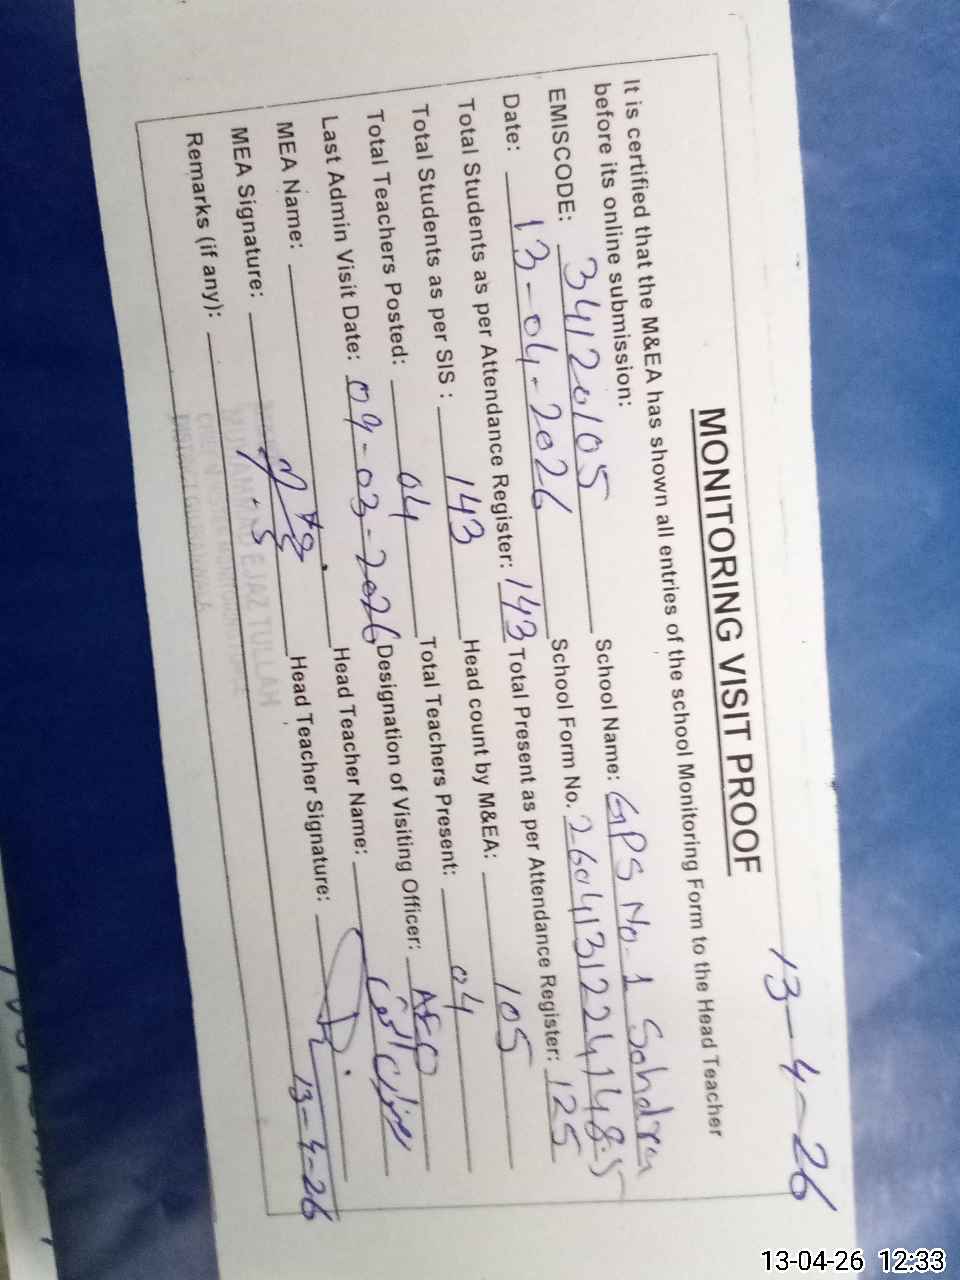 13-4-26
MONITORING VISIT PROOF
It is certified that the M&EA has shown all entries of the school Monitoring Form to the Head Teacher
before its online submission:
EMISCODE: 34120105 School Name: GPS No. 1 Sohdra
Date: 13-04-2026 School Form No. 26041312241485
Total Students as per Attendance Register: 143 Total Present as per Attendance Register: 125
Total Students as per SIS : 143 Head count by M&EA: 105
Total Teachers Posted: 04 Total Teachers Present: 04
Last Admin Visit Date: 09-03-2026 Designation of Visiting Officer: AEO
MEA Name: Head Teacher Name:
MEA Signature: Head Teacher Signature: 13-4-26
Remarks (if any):
EJAZ TULLAH
13-04-26 12:33